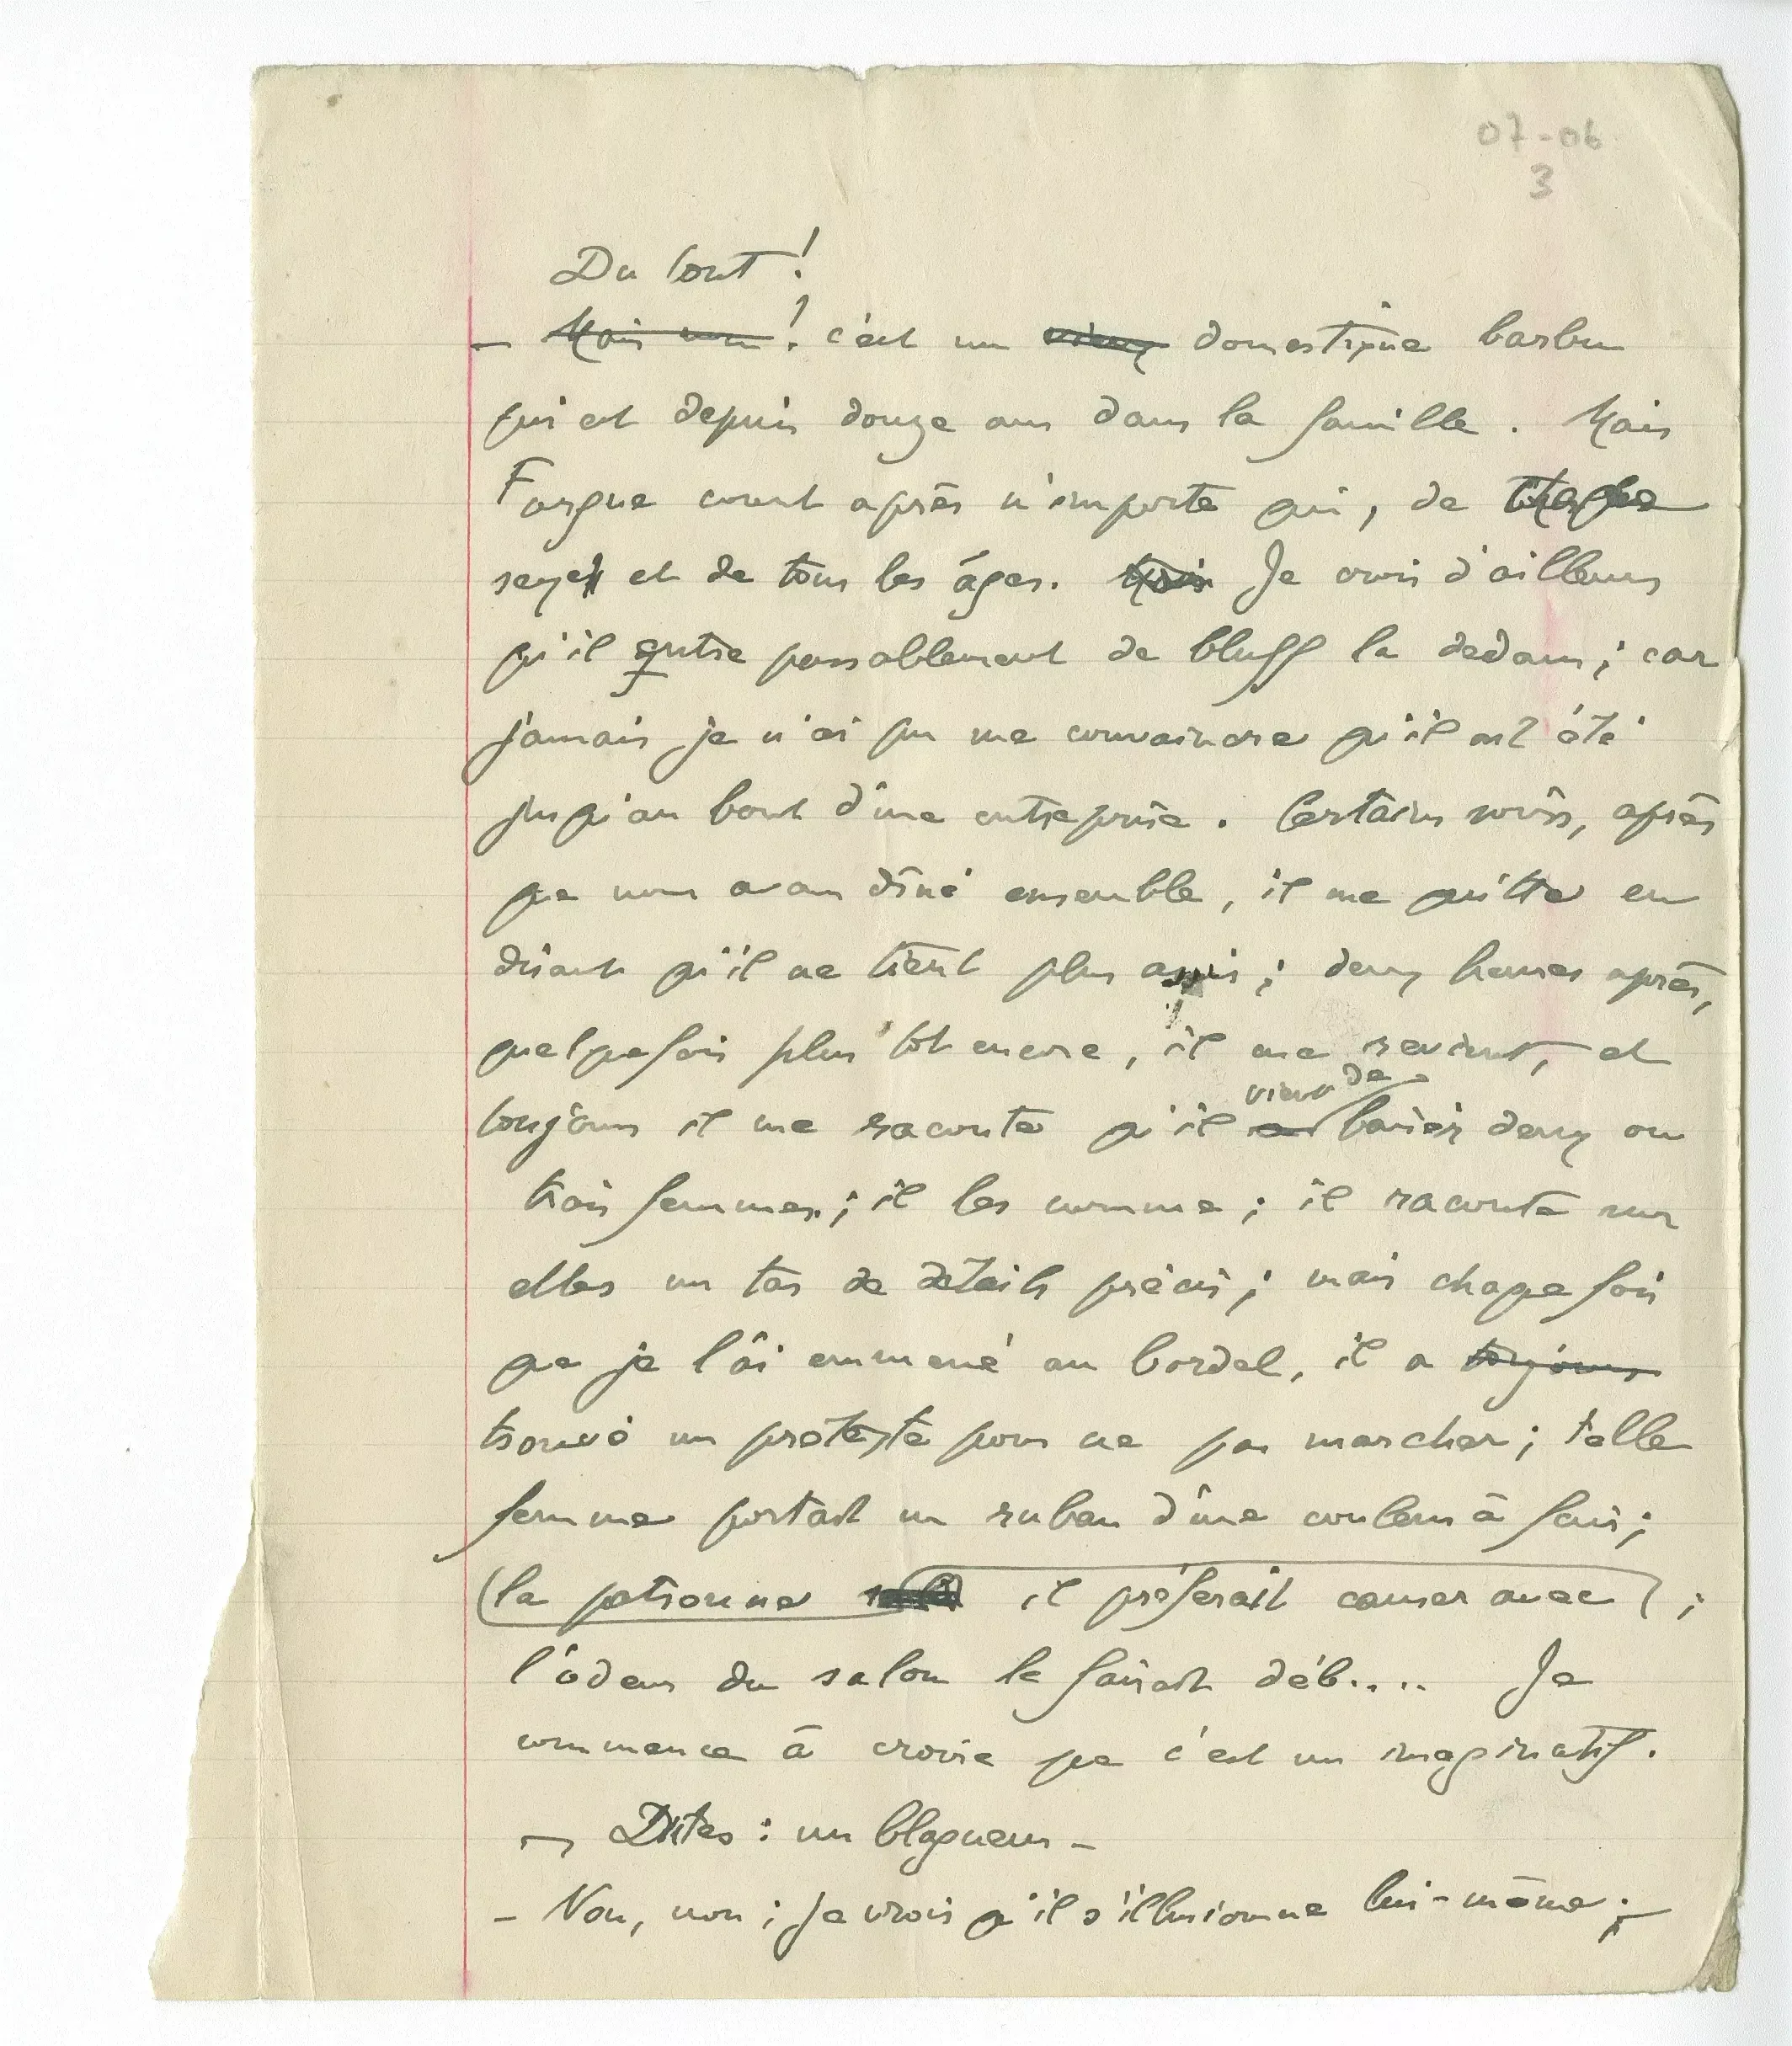 07-06
3
Du tout !
– Mais non ! c'est un vieux domestique barbu
qui est depuis douze ans dans la famille. Mais
Fargue court après n'importe qui, de
sexe et de tous les âges. Mais Je crois d'ailleurs
qu'il entre passablement de bluff la dedans ; car
jamais je n'ai pu me convaincre qu'il ait été
jusqu'au bout d'une entreprise. Certains soirs, après
que nous avons dîné ensemble, il me quitte en
disant qu'il ne tient plus assis ; deux heures après,
quelquefois plus tôt encore, il me revient, et
vient de
toujours il me raconte qu'il a baiser deux ou
trois femmes ; il les nomme ; il raconte sur
elles un tas de détails précis ; mais chaque fois
que je l'ai emmené au bordel, il a toujours
trouvé un prétexte pour ne pas marcher ; telle
femme portait un ruban d'une couleur à fuir ;
la patronne il préférait causer avec ;
l'odeur du salon le faisait déb.... Je
commence à croire que c'est un imaginatif.
– Dites : un blagueur –
– Non, non ; je crois qu'il s'illusionne lui-même ;